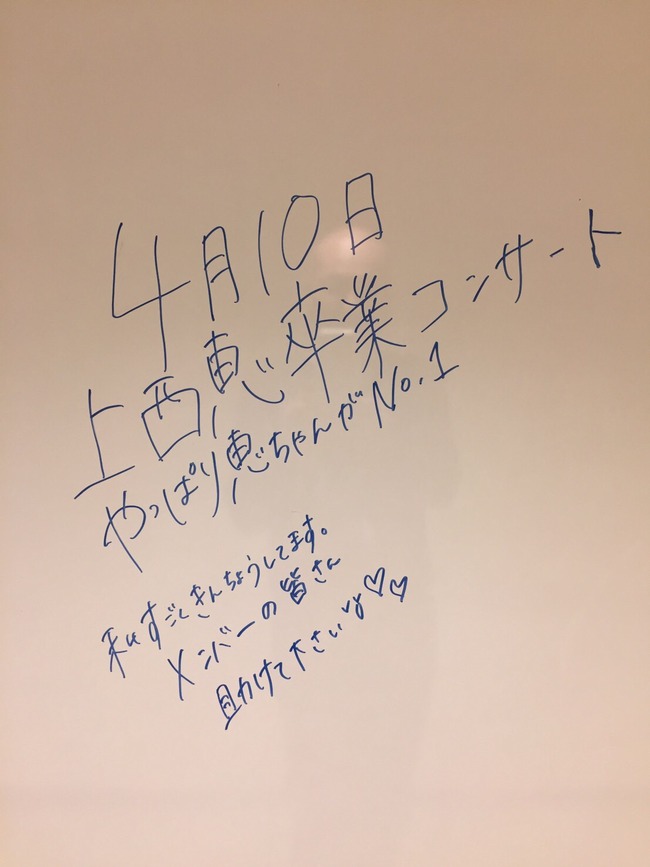 4月10日
上西恵卒業コンサート
やっぱり恵ちゃんがNo.1
私はすごくきんちょうしてます。
メンバーの皆さん
助けて下さいね♡♡